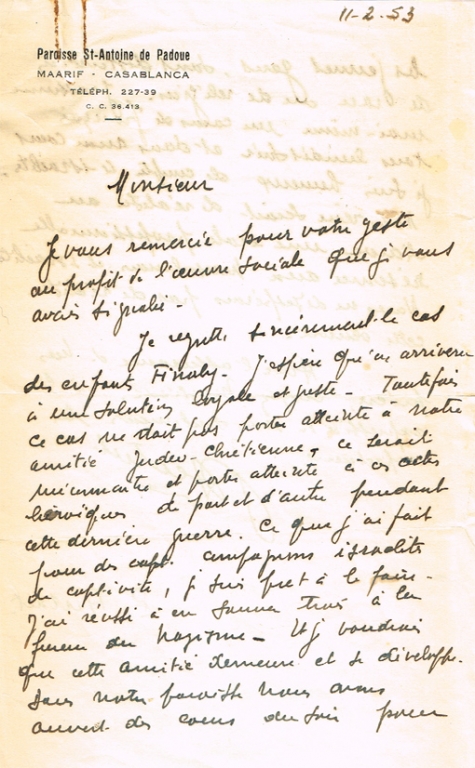 11-2.53
Paroisse St-Antoine de Padoue
MAARIF - CASABLANCA
TÉLÉPH. 227-39
C. C. 36.413
Monsieur
Je vous remercie pour votre geste
au profit de l'œuvre sociale que j vous
avais signalée.
Je regrette sincèrement le cas
des enfants Finaly. J'espère qu'on arrivera
à une solution loyale et juste. Toutefois
ce cas ne doit pas porter atteinte à notre
amitié Judeo-chrétienne, ce serait
méconnaître et porter atteinte à ces actes
héroïques de part et d'autre pendant
cette dernière guerre. Ce que j'ai fait
pour des compagnons israelites
de captivité, j suis prêt à le faire.
J'ai réussi à en sauver trois à la
fureur du nazisme. Et j voudrais
que cette amitié demeure et se développe.
Dans notre paroisse nous avons
ouvert des cours du soir pour